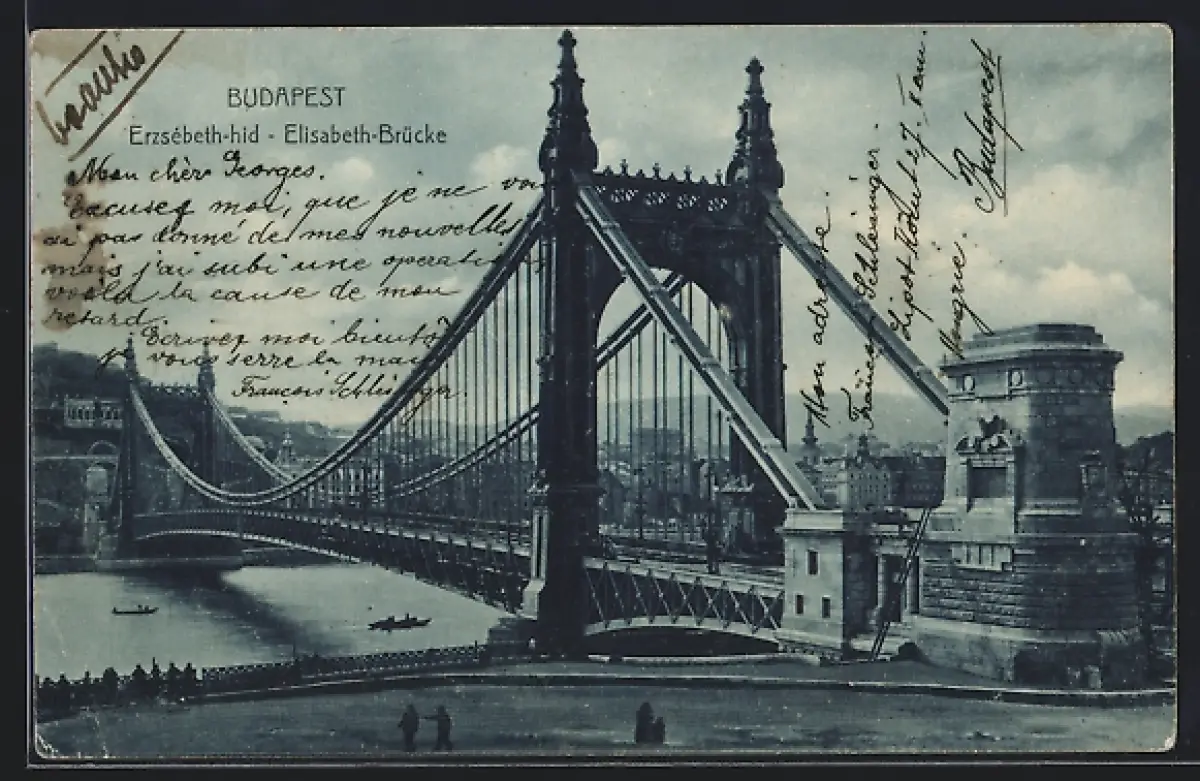 BUDAPEST
Erzsébeth-hid - Elisabeth-Brücke
Mon chèr Georges.
Excusez moi, que je ne vo
ai pas donné de mes nouvelles
mais j'ai subi une operati
voila la cause de mon
retard.
Ecrivez moi bientôt
je vous serre la main
François Schlesinger.
Mon adresse.
François Schlesinger.
Lipót Körút 27.
Budapest
Hungrie.